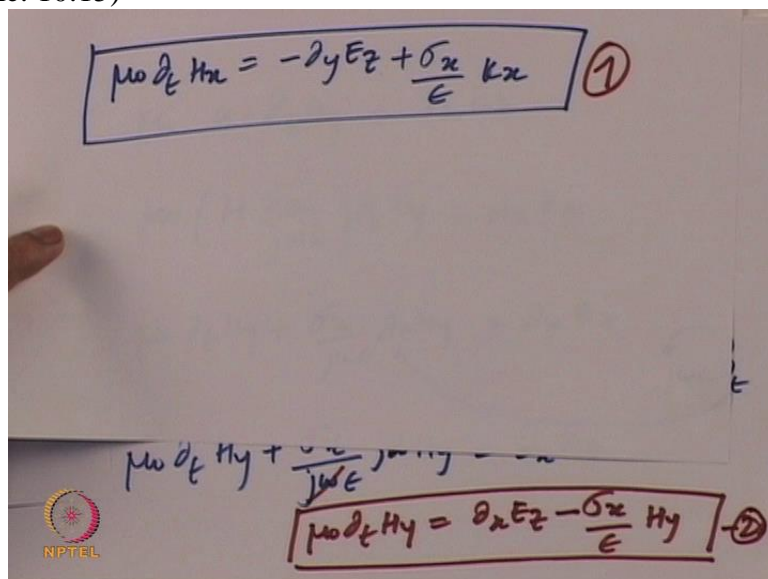 μ₀ ∂t Hx = -∂y Ez + σx/ϵ Kx ①
μ₀ ∂t Hy + σx/jωϵ jω Hy
μ₀ ∂t Hy = ∂x Ez - σx/ϵ Hy -②
NPTEL